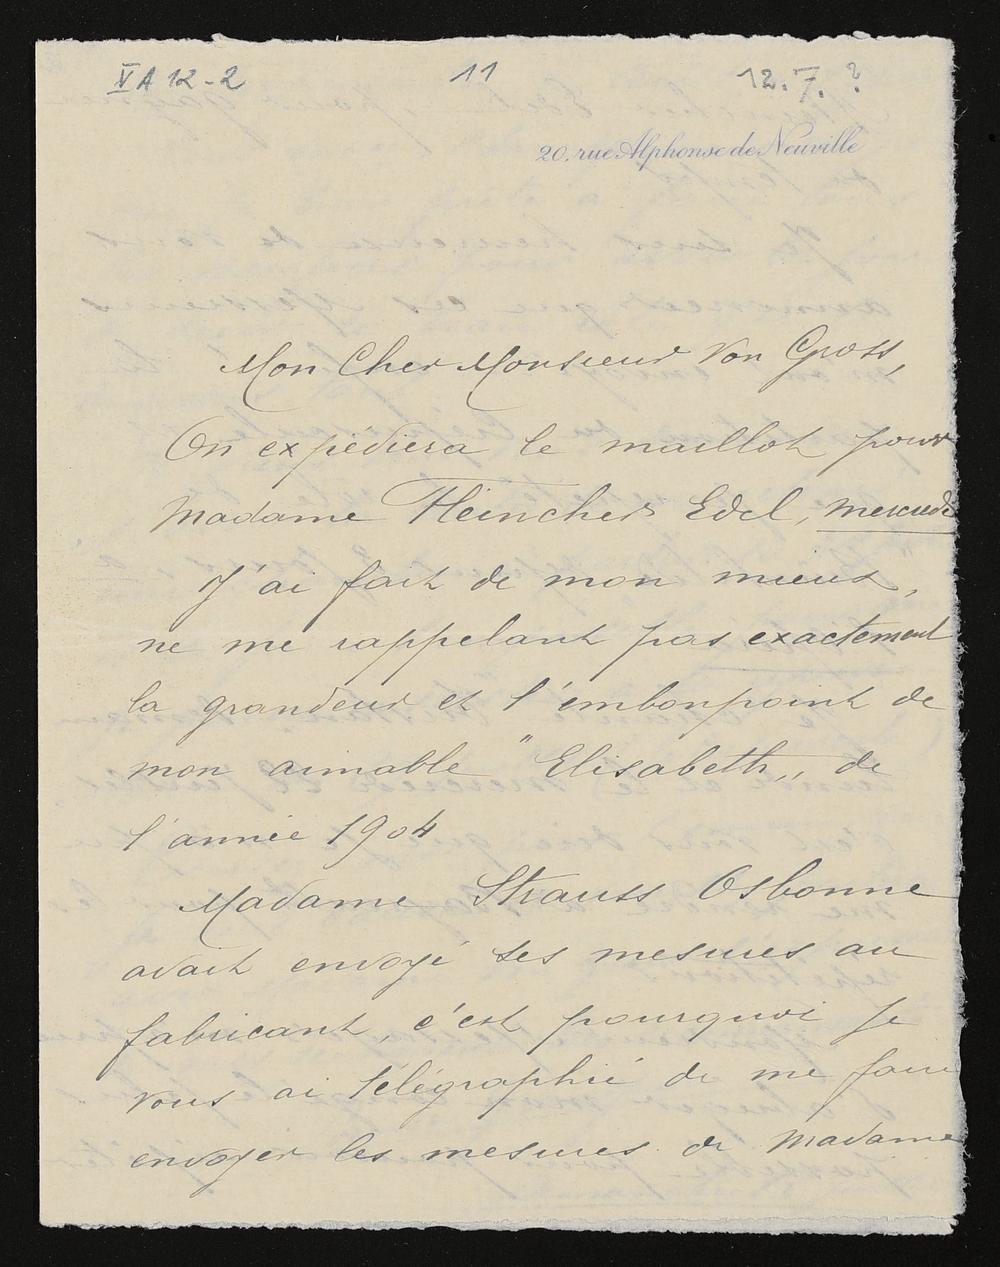 V A 12-2
11
12.7.?
20, rue Alphonse de Neuville
Mon Cher Monsieur von Gross,
On expediera le maillot pour
Madame Fleincher Edel, mercredi
J'ai fait de mon mieux,
ne me rappelant pas exactement
la grandeur et l'embonpoint de
mon aimable "Elisabeth,, de
l'année 1904
Madame Strauss Osbonne
avait envoyé ses mesures au
fabricant, c'est pourquoi je
vous ai télégraphié de me faire
envoyer les mesures de Madame